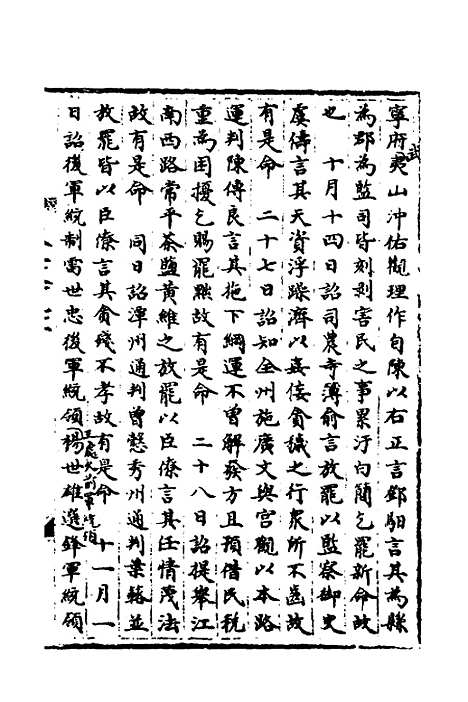 寧府夷山沖佑觀理作自陳以右正言鄧馹言其為縣
武
為郡為監司皆刻剥害民之事累汙白簡乞罷新命故
也　十月十四日詔司農寺簿俞言放罷以監察御史
虞儔言其天資浮躁濟以姦佞貪穢之行衆所不齒故
有是命　二十七日詔知全州施廣文與宮觀以本路
運判陳傅良言其拖下綱運不曾解發方且預借民稅
重為困擾乞賜罷黜故有是命　二十八日詔提舉江
南西路常平茶鹽黄維之放罷以臣僚言其任情蔑法
故有是命　同日詔潭州通判曾慤秀州通判葉輅並
放罷皆以臣僚言其貪殘不孝故有是命　十一月一
日詔後軍統制雷世忠後軍統領楊世雄選鋒軍統領